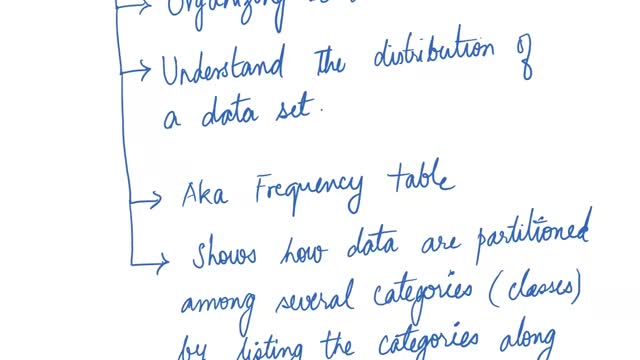 Organizing
Understand the distribution of
a data set.
Aka Frequency table
Shows how data are partitioned
among several categories (classes)
by listing the categories along